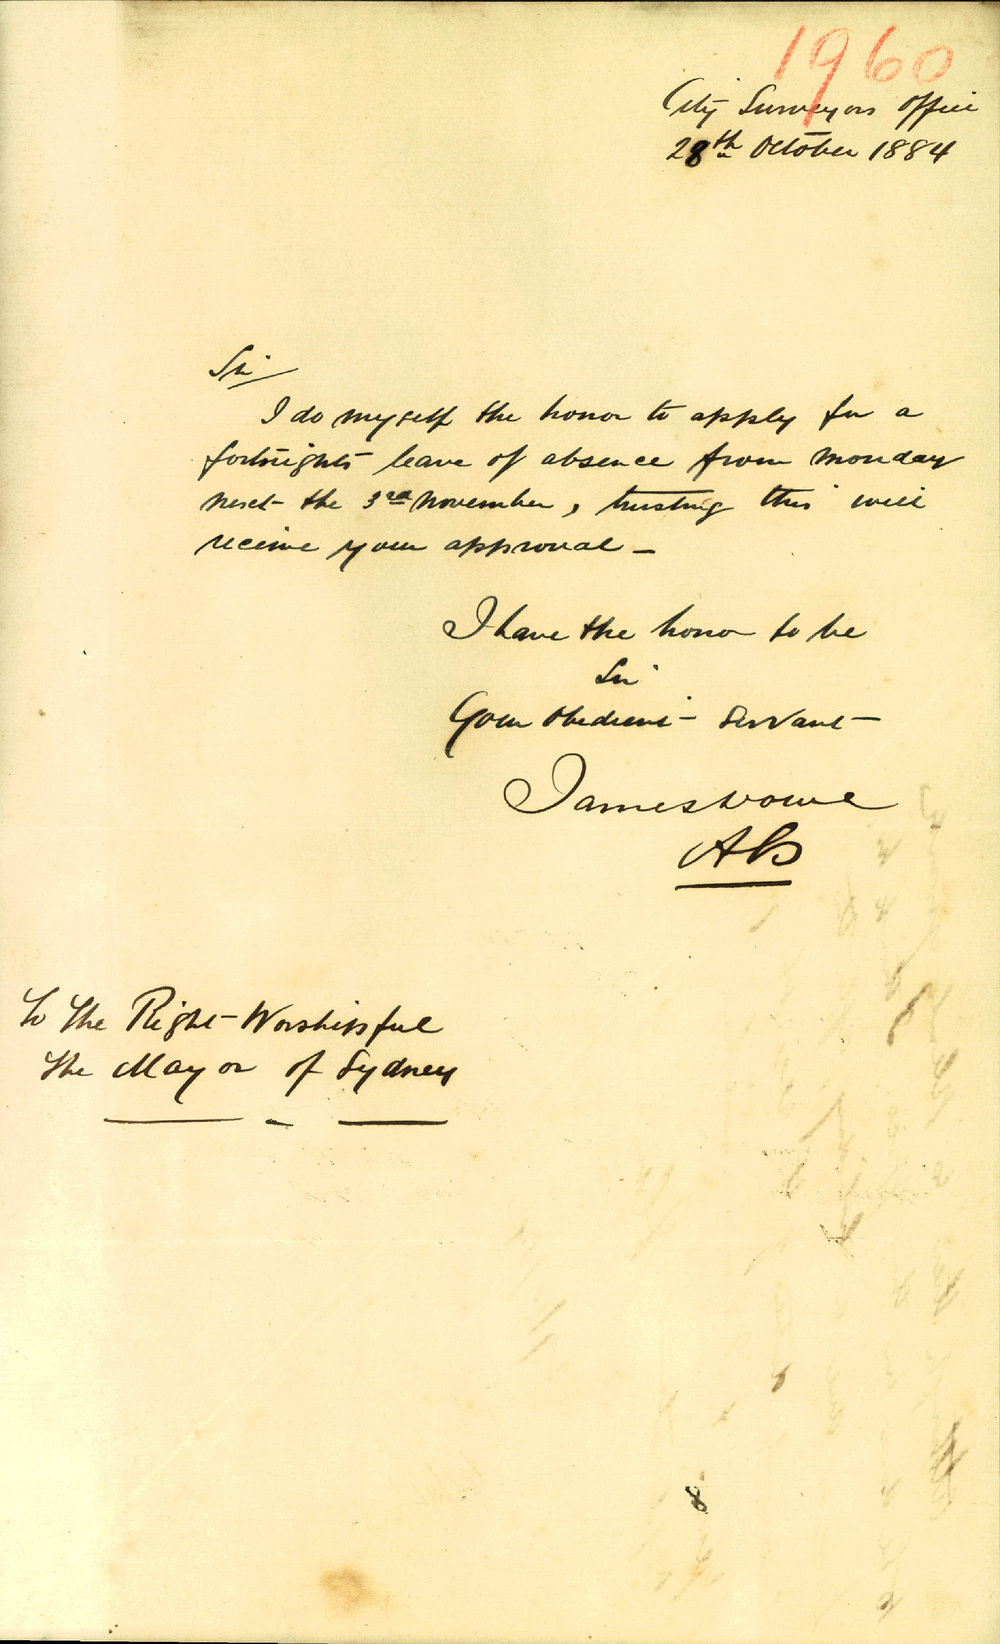 1960
City Surveyors Office
28th October 1884
Sir
I do myself the honor to apply for a
fortnights leave of absence from Monday
next the 3rd November, trusting this will
receive your approval -
I have the honor to be
Sir
Your Obedient Servant
James
To The Right Worshipful
The Mayor of Sydney